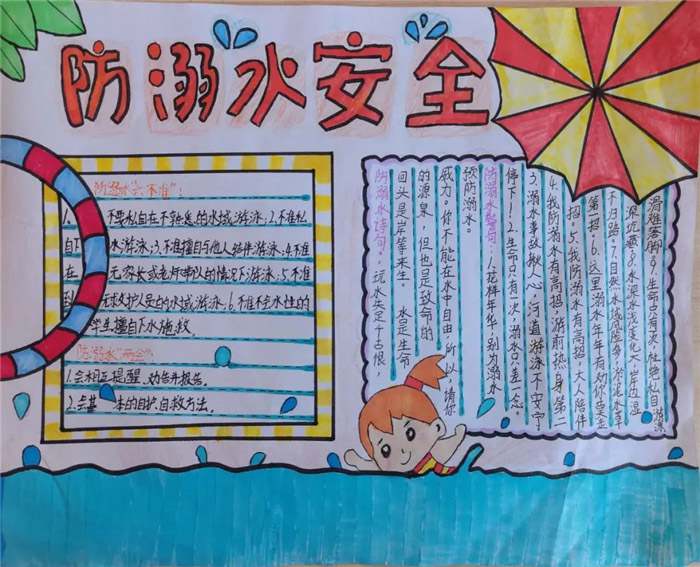 防溺水安全
防溺水"六不准":
1. 不要私自在不熟悉的水域游泳;2.不准私
自下 水游泳;3.不准擅自与他人结伴游泳;4.不准
在 无家长或老师带队的情况下游泳;5.不准
到 无救护人员的水域游泳;6.不准不会水性的
学生擅自下水施救
防溺水"两会":
1.会相互提醒、劝告并报告。
2.会基 本的自护自救方法。
防溺水诗句:玩水失足千古恨,
回头是岸等来生。 水是生命
的源泉,但也是致命的
威力。你不能在水中自由 所以,请你
预防溺水。
防溺水警句:1.花样年华,别为溺水
停下!2.生命只有一次,溺水只差一念。
3.溺水事故揪人心,河道游泳不安宁
4.我防溺水有高招,游前热身第一
招。5.我防溺水有高招,大人陪伴
第一招;6.这里溺水年年有,劝你莫走
不归路。7.自然水域风险多,淤泥水草
深坑藏;8.水深水浅变化大,岸边湿
滑难落脚;9.生命只有一次,杜绝私自
游泳